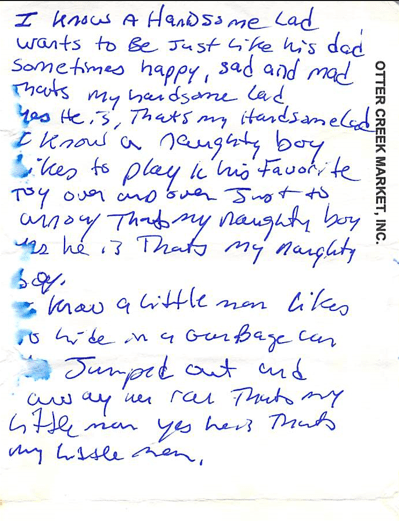 I know A Handsome Lad
wants to Be Just Like his dad
sometimes happy, sad and mad
Thats my handsome Lad
yes He is, Thats my Handsome Lad
I know a naughty boy
Likes to play w his Favorite
Toy over and over Just to
annoy Thats my Naughty boy
yes he is Thats my naughty
boy.
I know a Little man likes
to hide in a Garbage can
Jumped out and
away he ran Thats my
Little man yes he is Thats
my Little man.
OTTER CREEK MARKET, INC.